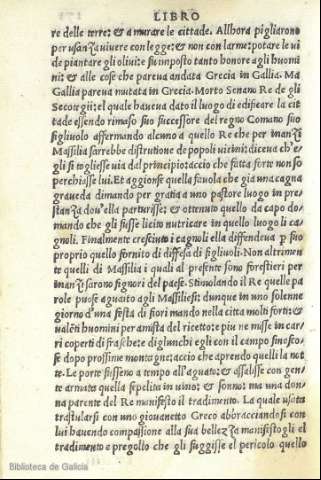 LIBRO
re delle terre: & a murare le cittade. Allhora pigliarono
per usanza uivere con legge: & non con larme: potare le vi
de piantare gli olivi: & fu imposto tanto honore agli huomi
ni: & alle cose che pareva andata Grecia in Gallia. Ma
Gallia pareva mutata in Grecia. Morto Senano Re de gli
Secoregii: el quale haveva dato il luogo di edificare la cit
tade essendo rimaso suo successore del regno Comano suo
figlivolo affermando alcuno a quello Re che per inanzi
Massilia sarrebbe distrutione de popoli vicini: diceva ch'e
gli si togliesse via dal principio: accio che fatta forte non so
perchiasse lui. Et aggionse quella favola che gia una cagna
graveda dimando per gratia a uno pastore luogo in pre-
stanza dov'ella parturisse: & ottenuto quello da capo do-
mando che gli fusse licito nutricare in quello luogo li ca
gnoli. Finalmente cresciuti i cagnoli ella diffendeva p suo
proprio quello fornito di diffesa di figlivoli. Non altrimen
te quelli di Massilia i quali al presente sono forestieri per
inanzi sarono signori del paese. Stimolando il Re quelle pa
role puose aguaito agli Massiliesi: dunque in uno solenne
giorno d'una festa di fiori mando nella citta molti forti: &
valēti huomini per amista del ricetto: e piu ne misse in car-
ri coperti di fraschete di giunchi egli con il campo s'inasco-
se dopo prossime montagne: accio che aprendo quelli la not
te. Le porte fusseno a tempo all'aguato: & assalisse con gen-
te armata quella sepelita in vino: & sonno: ma una don-
na parente del Re manifesto il tradimento. La quale usata
trastularsi con uno giovanetto Greco abbracciandosi con
lui havendo compassione alla sua bellezza manifestogli el
tradimento e pregollo che gli fuggisse el pericolo quello
Biblioteca de Galicia